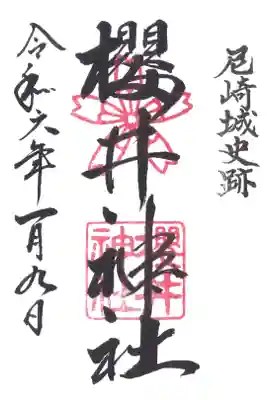 尼崎城史跡
櫻井神社
櫻井
神社
令和六年一月九日